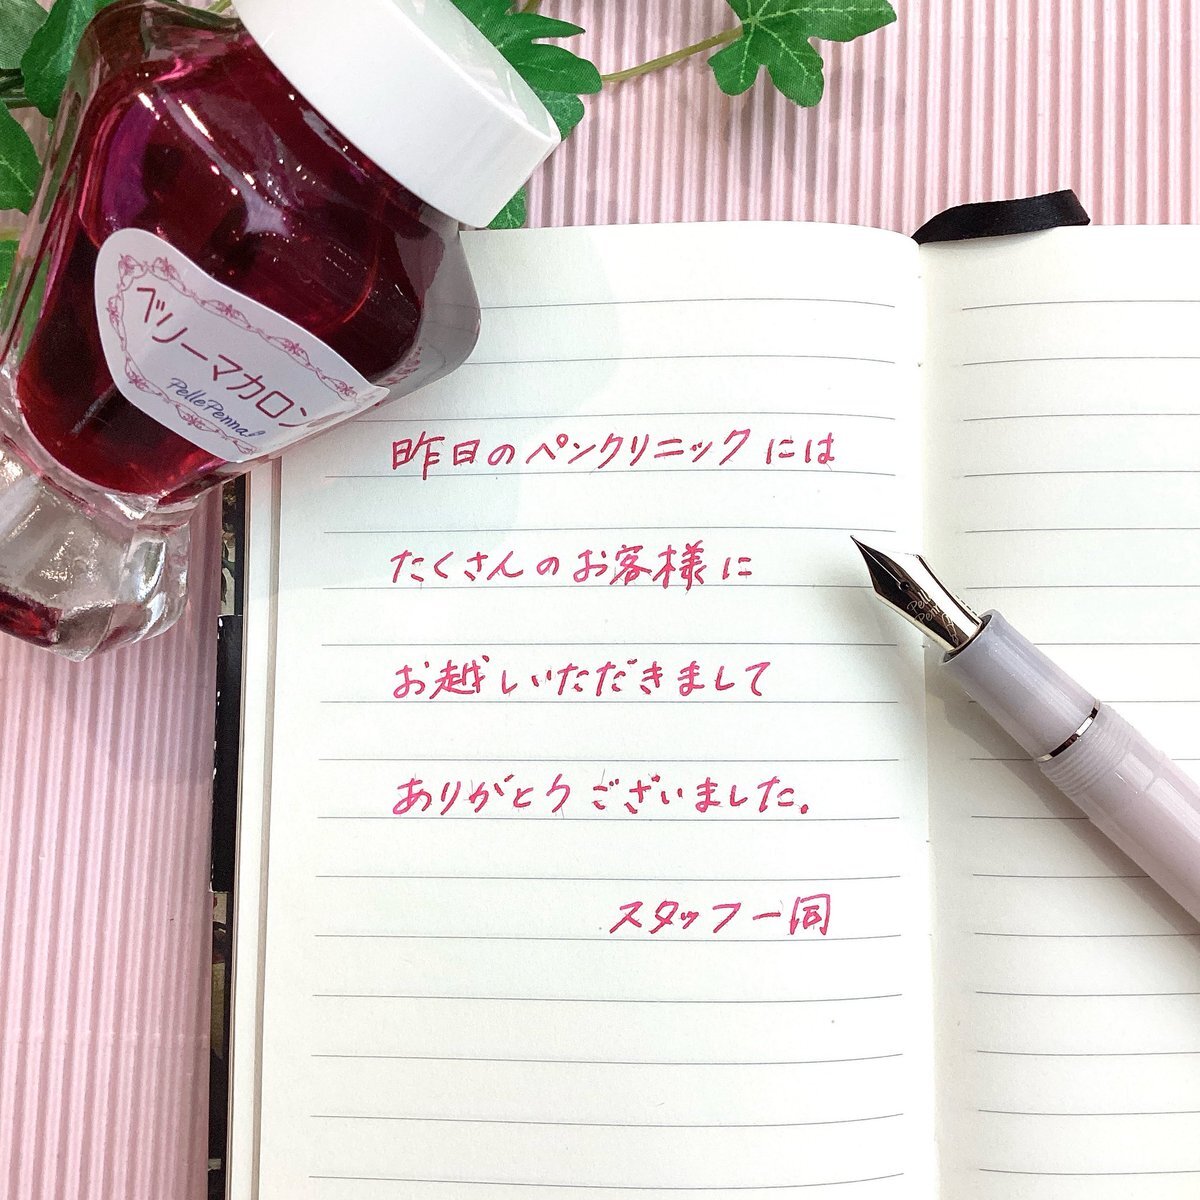 ベリーマカロン
PellePenna
昨日のペンクリニックには
たくさんのお客様に
お越しいただきまして
ありがとうございました。
スタッフ一同
Pelle
Penna